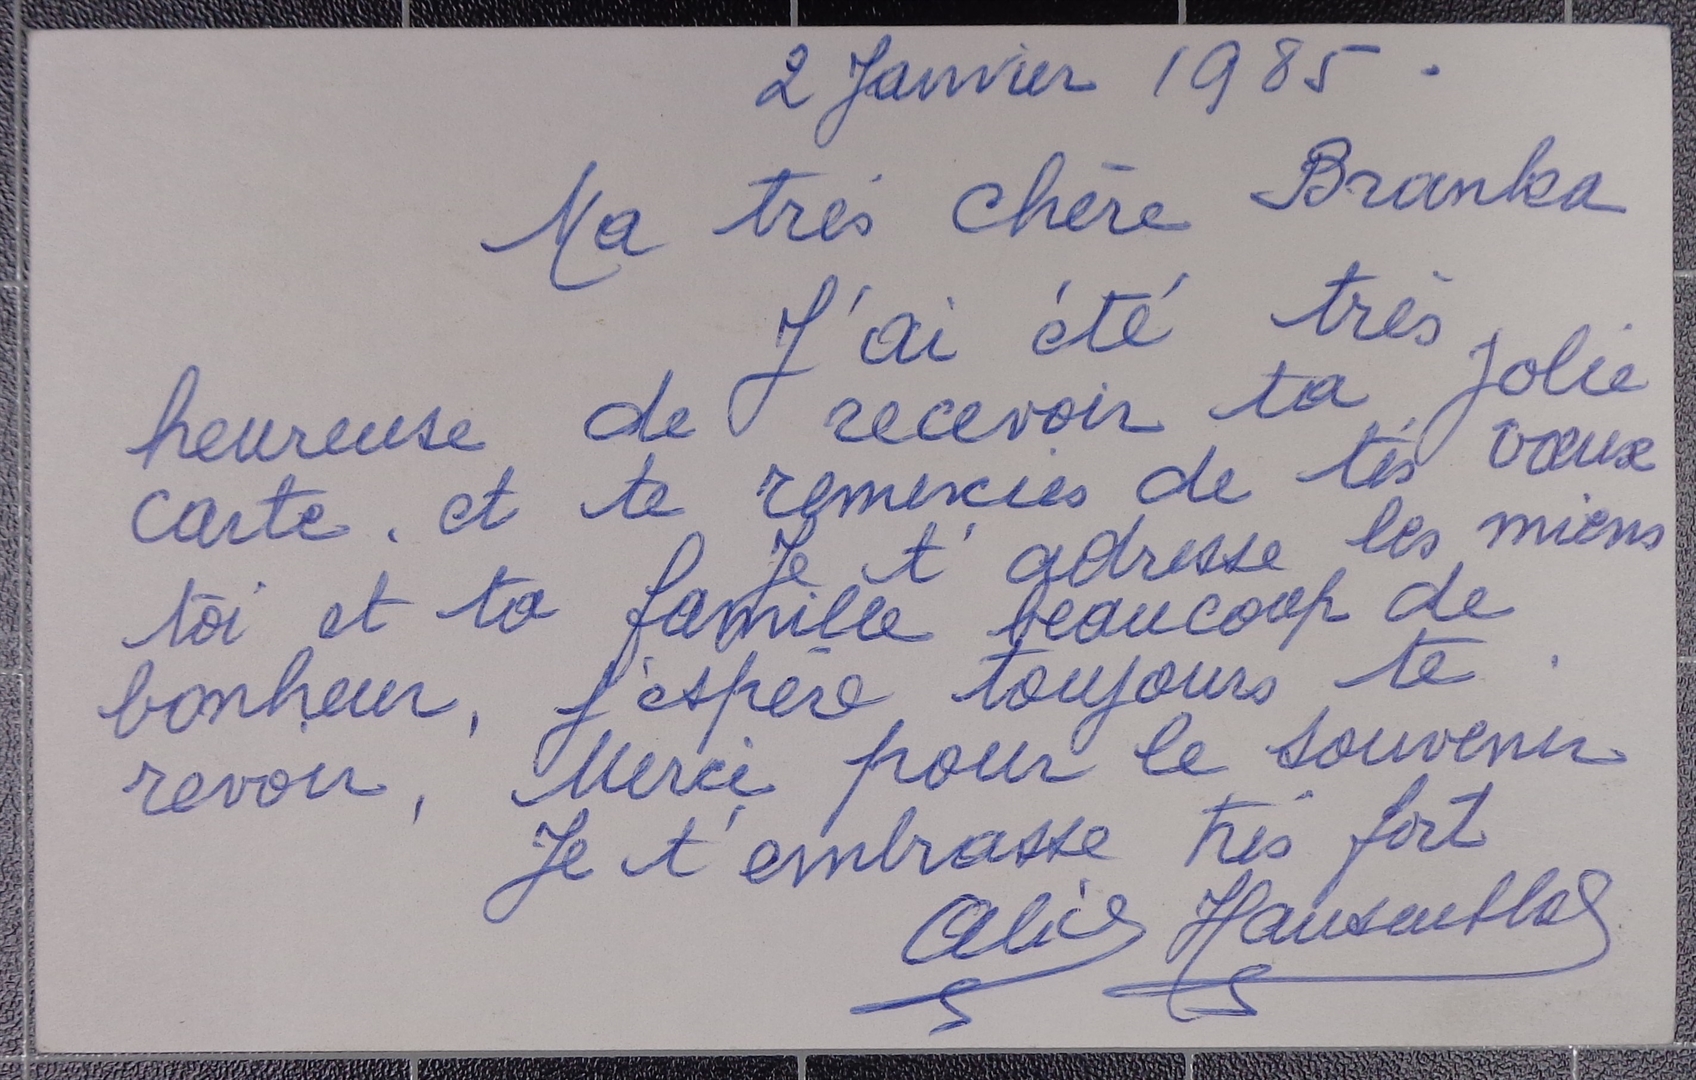 2 Janvier 1985.
Ma très chère Branka
J'ai été très
heureuse de recevoir ta jolie
carte. et te remercies de tes vœux
Je t'adresse les miens
toi et ta famille beaucoup de
bonheur, j'espère toujours te
revoir, Merci pour le souvenir
Je t'embrasse très fort
Alice